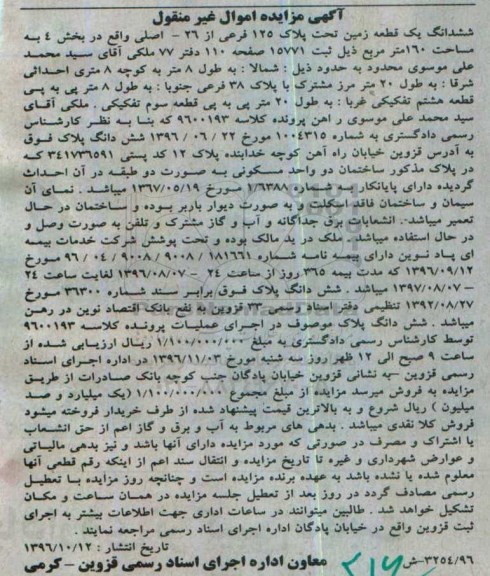 آگهی مزایده اموال غیر منقول
ششدانگ یک قطعه زمین تحت پلاک ۱۲۵ فرعی از ۲۶ - اصلی واقع در بخش ٤ به
مساحت ۱۶۰متر مربع ذیل ثبت ۱۵۷۷۱ صفحه ۱۱۰ دفتر ۷۷ ملکی آقای سید محمد
علی موسوی محدود به حدود ذیل : شمالا : به طول ۸ متر به کوچه ۸ متری احداثی
شرقا : به طول ۲۰ متر مرز مشترک با پلاک ۳۸ فرعی جنوبا : به طول ۸ متر پی به پی
قطعه هشتم تفکیکی غربا : به طول ۲۰ متر پی به پی قطعه سوم تفکیکی . ملکی آقای
سید محمد علی موسوی ر اهن پرونده کلاسه ۹۶۰۰۱۹۳ که بنا به نظر کارشناس
رسمی دادگستری به شماره ۱۰۰٤۳۱۵ مورخ ۲۲ / ۰۶ / ۱۳۹۶ شش دانگ پلاک فوق
به آدرس قزوین خیابان راه آهن کوچه خدابنده پلاک ۱۲ کد پستی ۳٤۱۷۳۶۵۹۱ که
در پلاک مذکور ساختمان دو واحد مسکونی به صورت دو طبقه در آن احداث
گردیده دارای پایانکار به شماره ۱/۶۳۸۸ مورخ ۱۳۶۷/۰۵/۱۹ میباشد . نمای آن
سیمان و ساختمان فاقد اسکلت و به صورت دیوار باربر بوده و ساختمان در حال
تعمیر میباشد. انشعابات برق جداگانه و آب و گاز مشترک و تلفن به صورت وصل و
در حال استفاده میباشد. ملک در ید مالک بوده و تحت پوشش شرکت خدمات بیمه
ای پاد نوین دارای بیمه نامه شماره ۱۸۱۶۶۱ / ۹۰۰۸ / ۹۰۰۸ / ۰٤ / ۹۶ مورخ
۱۳۹۶/۰۹/۱۲ که مدت بیمه ۳۶۵ روز از ساعت ۲٤ - ۱۳۹۶/۰۸/۰۷ لغایت ساعت ۲٤
- ۱۳۹۷/۰۸/۰۷ میباشد . شش دانگ پلاک فوق برابر سند شماره ۳۶۳۰۰ مورخ
۱۳۹۲/۰۸/۲۷ تنظیمی دفتر اسناد رسمی ۳۳ قزوین به نفع بانک اقتصاد نوین در رهن
میباشد . شش دانگ پلاک موصوف در اجرای عملیات پرونده کلاسه ۹۶۰۰۱۹۳
توسط کارشناس رسمی دادگستری به مبلغ ۱/۱۰۰/۰۰۰/۰۰۰ ریال ارزیابی شده از
ساعت ۹ صبح الی ۱۲ ظهر روز سه شنبه مورخ ۱۳۹۶/۱۱/۰۳ در اداره اجرای اسناد
رسمی قزوین -به نشانی قزوین خیابان پادگان جنب کوچه بانک صادرات از طریق
مزایده به فروش میرسد مزایده از مبلغ مجموع ۱/۱۰۰/۰۰۰/۰۰۰ (یک میلیارد و صد
میلیون ) ریال شروع و به بالاترین قیمت پیشنهاد شده از طرف خریدار فروخته میشود
فروش کلا نقدی میباشد . بدهی های مربوط به آب و برق و گاز اعم از حق انشعاب
یا اشتراک و مصرف در صورتی که مورد مزایده دارای آنها باشد و نیز بدهی مالیاتی
و عوارض شهرداری و غیره تا تاریخ مزایده و انتقال سند اعم از اینکه رقم قطعی آنها
معلوم شده یا نشده باشد به عهده برنده مزایده است و چنانچه روز مزایده با تعطیل
رسمی مصادف گردد در روز بعد از تعطیل جلسه مزایده در همان ساعت و مکان
تشکیل خواهد شد . طالبین میتوانند در ساعات اداری جهت اطلاعات بیشتر به اجرای
ثبت قزوین واقع در خیابان پادگان اداره اجرای اسناد رسمی مراجعه نمایند .
تاریخ انتشار : ۱۳۹۶/۱۰/۱۲
معاون اداره اجرای اسناد رسمی قزوین - کرمی
۳۲۵٤/۹۶-ش